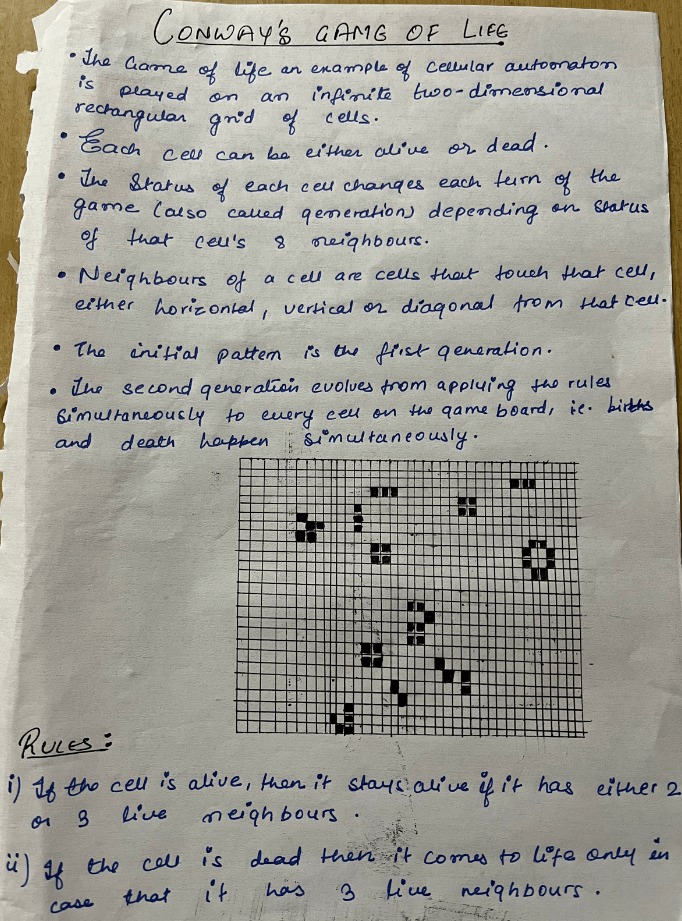 CONWAY'S GAME OF LIFE
• The Game of life an example of cellular automaton
is played on an infinite two-dimensional
rectangular grid of cells.
• Each cell can be either alive or dead.
• The Status of each cell changes each turn of the
game (also called generation) depending on status
of that cell's 8 neighbours.
• Neighbours of a cell are cells that touch that cell,
either horizontal, vertical or diagonal from that cell.
• The initial pattern is the first generation.
• The second generation evolves from applying the rules
simultaneously to every cell on the game board, ie. births
and death happen simultaneously.
RULES:
i) If the cell is alive, then it stays alive if it has either 2
or 3 live neighbours.
ii) If the cell is dead then it comes to life only in
case that it has 3 live neighbours.